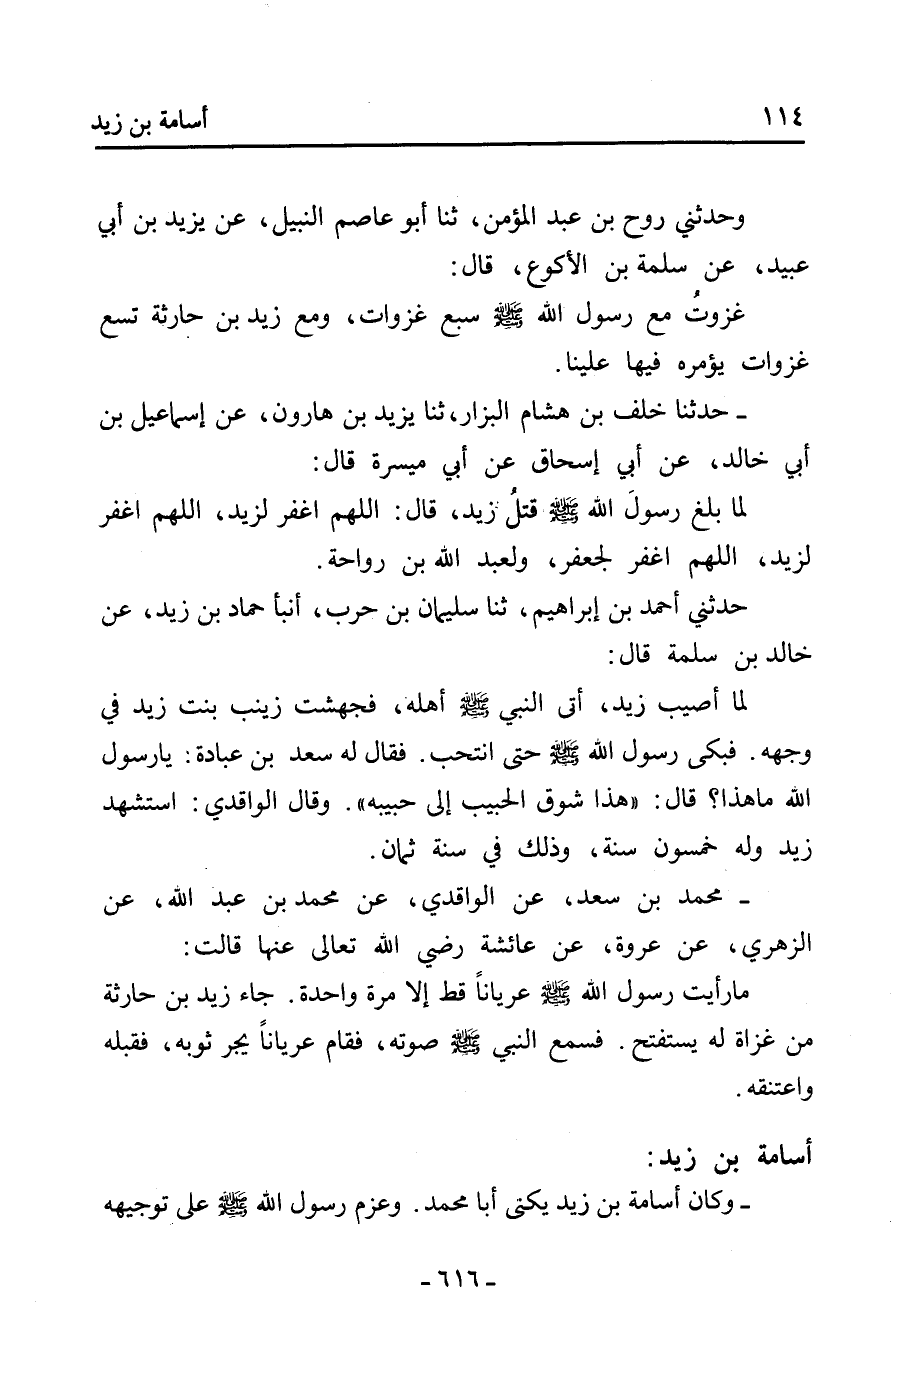 ١١٤
أسامة بن زيد
وحدثني روح بن عبد المؤمن، ثنا أبو عاصم النبيل، عن يزيد بن أبي
عبيد، عن سلمة بن الأكوع، قال:
غزوتُ مع رسول الله ﷺ سبع غزوات، ومع زيد بن حارثة تسع
غزوات يؤمره فيها علينا.
ـ حدثنا خلف بن هشام البزار،ثنا يزيد بن هارون، عن إسماعيل بن
أبي خالد، عن أبي إسحاق عن أبي ميسرة قال:
لما بلغ رسولَ الله ﷺ قتلُ زيد، قال: اللهم اغفر لزيد، اللهم اغفر
لزيد، اللهم اغفر لجعفر، ولعبد الله بن رواحة.
حدثني أحمد بن إبراهيم، ثنا سليمان بن حرب، أنبأ حماد بن زيد، عن
خالد بن سلمة قال:
لما أصيب زيد، أتى النبي ﷺ أهله، فجهشت زينب بنت زيد في
وجهه. فبكى رسول الله ﷺ حتى انتحب. فقال له سعد بن عبادة: يارسول
الله ماهذا؟ قال: «هذا شوق الحبيب إلى حبيبه». وقال الواقدي: استشهد
زيد وله خمسون سنة، وذلك في سنة ثمان.
ـ محمد بن سعد، عن الواقدي، عن محمد بن عبد الله، عن
الزهري، عن عروة، عن عائشة رضي الله تعالى عنها قالت:
مارأيت رسول الله ﷺ عرياناً قط إلا مرة واحدة. جاء زيد بن حارثة
من غزاة له يستفتح. فسمع النبي ﷺ صوته، فقام عرياناً يجر ثوبه، فقبله
واعتنقه.
أسامة بن زيد:
ـ وكان أسامة بن زيد يكنى أبا محمد. وعزم رسول الله ﷺ على توجيهه
ـ ٦١٦ ـ